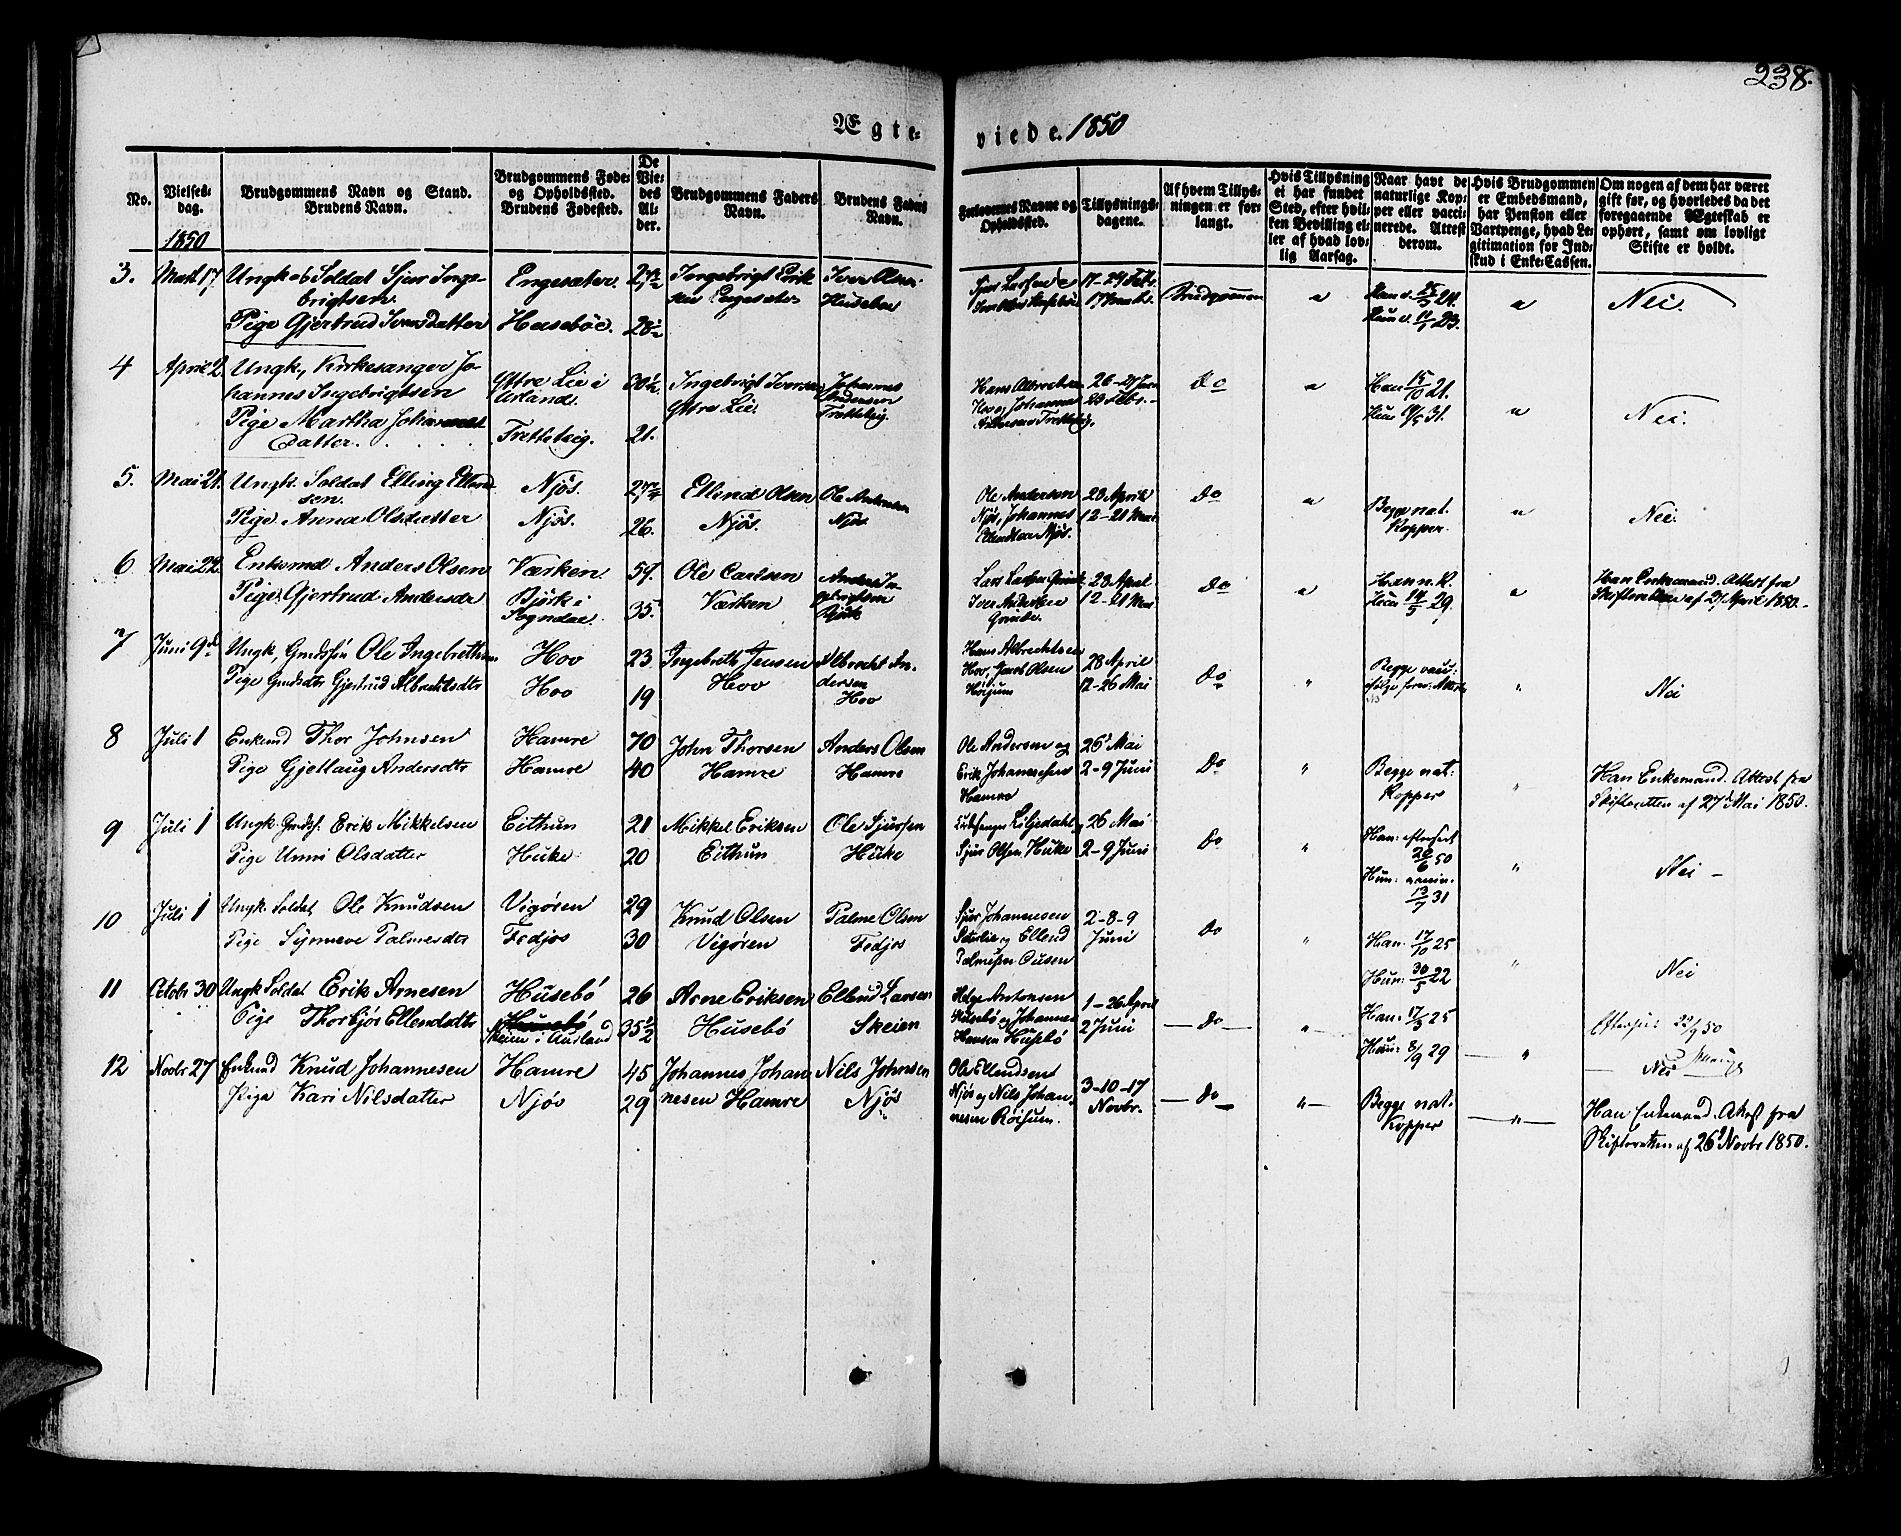 238.
Ægte-
viede. 1850
No.
Vielses-
dag.
1850
Brudgommens Navn og Stand.
Brudens Navn.
Brudgommens Føde-
og Opholdssted.
Brudens Fødested.
De
Vie-
des
Al-
der.
Brudgommens Faders
Navn.
Brudens Faders
Navn.
Forlovernes Navne og
Opholdssted.
Tillysnings-
dagene.
Af hvem Tillys-
ningen er for-
langt.
Hvis Tillysning
ei har fundet
Sted, efter hvil-
ken Bevilling el-
ler af hvad lov-
lig Aarsag.
Naar havt de
naturlige Kop-
per eller vacci-
nerede. Attest
derom.
Hvis Brudgommen
er Embedsmand,
har Pension eller
Vartpenge, hvad Le-
gitimation for Ind-
skud i Enke-Cassen.
Om nogen af dem har været
gift før, og hvorledes da det
foregaaende Ægteskab er
ophørt, samt om lovligt
Skifte er holdt.
3. Soldat Sjur Inge-
brigtsen
Pige Gjertrud Iversdatter
Engesæter
Husebøe
28½
Ingebrigt Erik
sen Engesæter
Iver Olsen
Husebøe
17-24 Febr.
Brudgommen
Nei.
4 April 2. Ungk. Kirkesanger Jo-
hannes Ingebrigtsen
Pige Martha Johannes
Datter
Yttre Lie i
Urland
Tretteteig.
30½
21.
Ingebrigt Iversen
Yttre Lie
Johannes
Andersen
Tretteteig.
Do
Han 15/10 21.
Nei.
5. Mai 21. Ungk. Soldat Elling Ellend
sen.
Pige Anna Olsdatter
Njøs.
Njøs.
26.
Ellend Olsen
Njøs.
Ole Andersen
Njøs
Ole Andersen
Njøs, Johannes
Njøs.
28 April
12-21 Mai
Do
Begge nat.
Kopper.
Nei.
6 Mai 22. Enkemd Anders Olsen
Pige Gjertrud Andersdr
Værken.
Bjørk i
Sogndal.
59.
35.
Ole Carlsen
Værken
Anders In-
gebrigtsen
Bjørk
Iver Andersen
Grinde.
28 April
12-21 Mai
Do
Han n. K.
Hun 14/5 29.
Han Enkemand. Attest fra
Skifteretten af 27 April 1850.
7 Juni 9de Ungk, Gmdssøn Ole Ingebrethsen
Pige Gmdsdtr Gjertrud Albrechtsdtr
Hov
Hov
23
19
Ingebreth Jensen
Hov
Albrecht An-
dersen
Hov
Hans Albrechtsen
Hov, Jacob Olsen
28 April
12-26 Mai
Do
"
Begge vacc:
"
Nei
8 Juli 1 Enkemd Thor Johnsen
Pige Gjellaug Andersdtr
Hamre
Hamre
70
40
John Thorsen
Hamre
Anders Olsen
Hamre
Ole Andersen og
Erik Johannessen
Hamre
26 Mai
2-9 Juni
Do
"
Begge nat:
Kopper
"
Han Enkemand. Attest fra
Skifteretten af 27de Mai 1850.
9 Juli 1 Ungk. Gmdsf. Erik Mikkelsen
Pige Unni Olsdatter
Eithun
Huke
21
20
Mikkel Eriksen
Eithun
Ole Sjursen
Huke
Kirkesanger Liljedahl,
Sjur Olsen Huke
26 Mai
2-9 Juni
Do
"
Han: eftersat
20/6 50
Hun: vaccin.
13/7 31
"
Nei –
10 Juli 1 Ungk. Soldat Ole Knudsen
Pige Synneve Palmesdtr
Vigøren
Fedjos
29
30
Knud Olsen
Vigøren
Palme Olsen
Fedjos
Sjur Johannesen
og Ellend
Palmesen Ousen
2-8-9
Juni
Do
"
Han: 17/10 25
Hun: 30/5 22
"
Nei
11 Octobr 30 Ungk Soldat Erik Arnesen
Pige Thorbjør Ellendsdtr
Husebø
Husebø
Skeien i Aurland
26
35½
Arne Eriksen
Husebø
Ellend Larsen
Skeien
Helge Antonsen
Husebø og Johannes
Hansen Husebø
1-26 April
2 Juni
– Do –
"
Han: 17/3 25
Hun: 8/9 29
"
22/9 50
Nei
12 Novbr 27 Enkemd Knud Johannesen
Pige Kari Nilsdatter
Hamre
Njøs
45
29
Johannes Johan
nesen Hamre
Nils Johnsen
Njøs
Ole Ellendsen
Njøs og Nils Johan-
nesen Röisum.
3-10-17
Novbr.
– Do –
"
Begge nat.
Kopper
"
Han Enkemand. Attest fra
Skifteretten af 26de Novbr 1850.